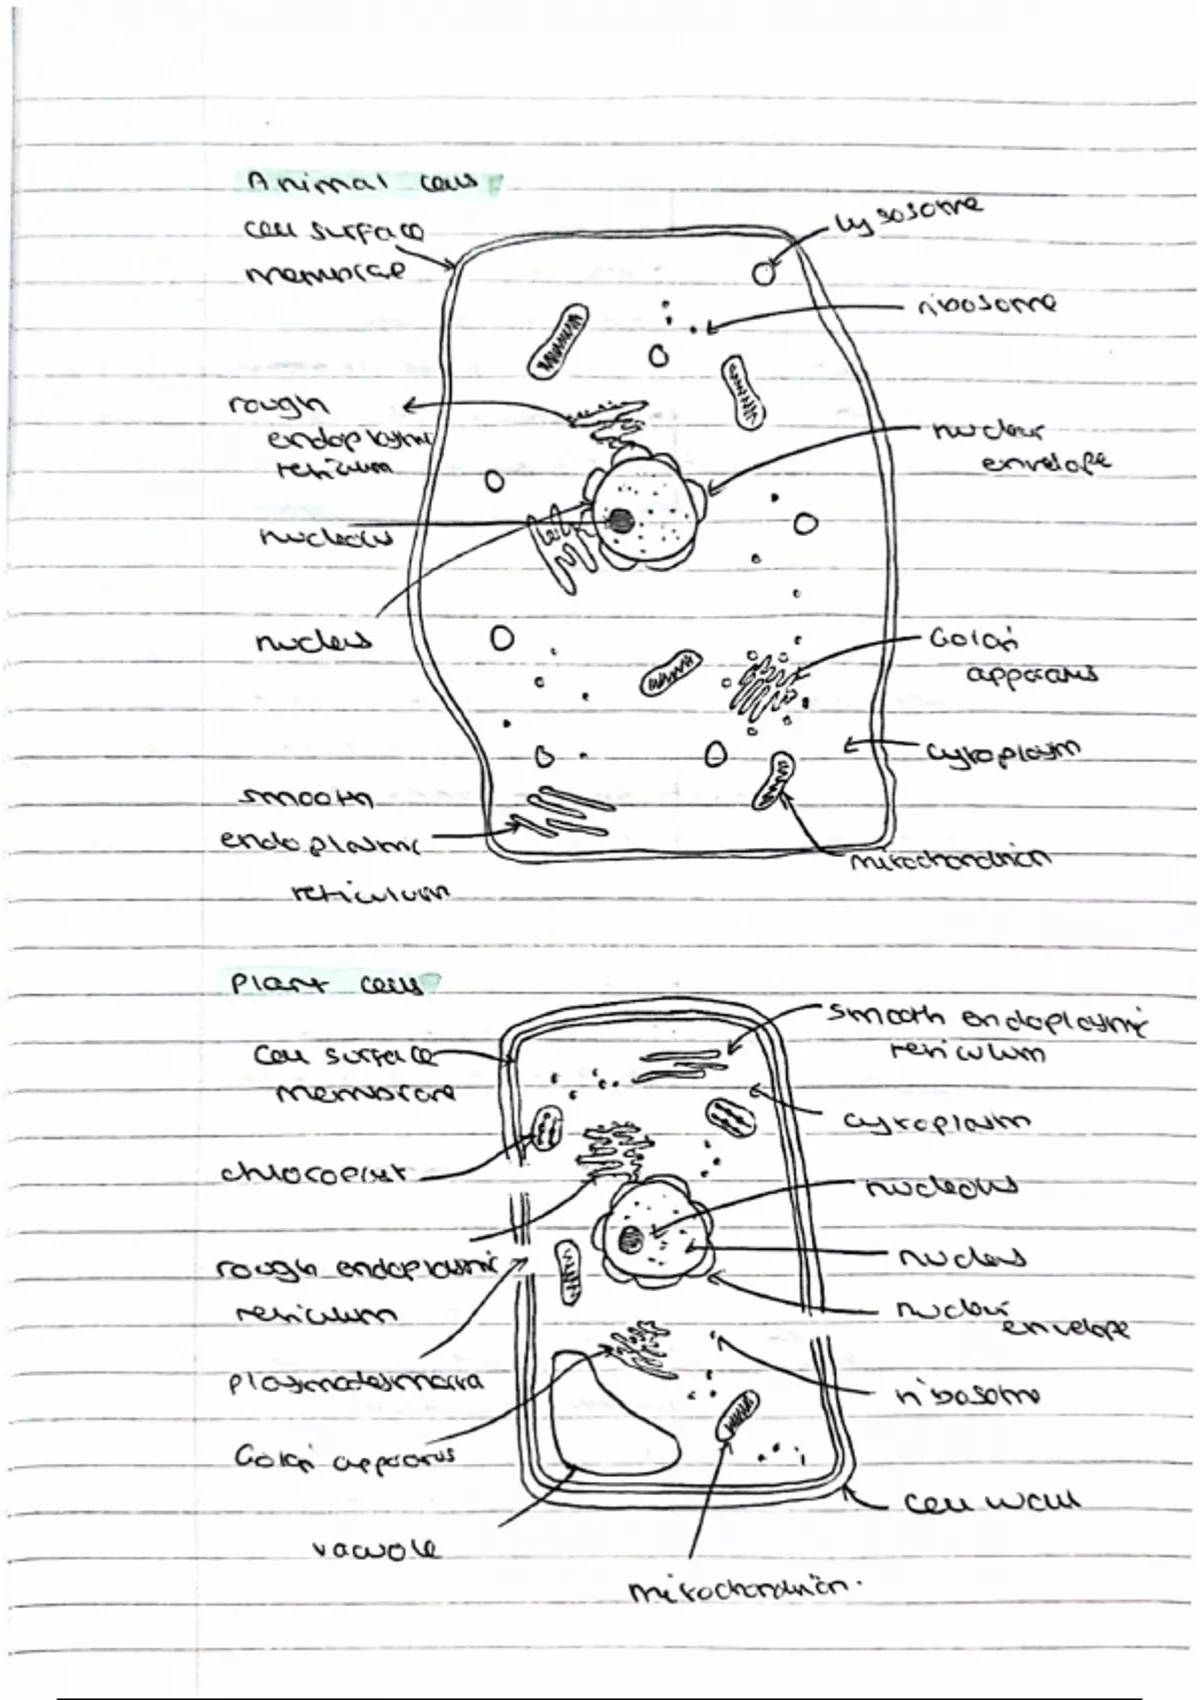 Animal cells
cell surface
membrane
lysosome
ribosome
rough
endoplasmic
reticulum
nuclear
envelope
nucleolus
nucleus
Golgi
apparatus
cytoplasm
smooth
endoplasmic
reticulum
mitochondrion
Plant cells
smooth endoplasmic
reticulum
cell surface
membrane
cytoplasm
chloroplast
nucleolus
rough endoplasmic
reticulum
nucleus
nuclear
envelope
plasmodesmata
ribosome
Golgi apparatus
cell wall
vacuole
mitochondrion.